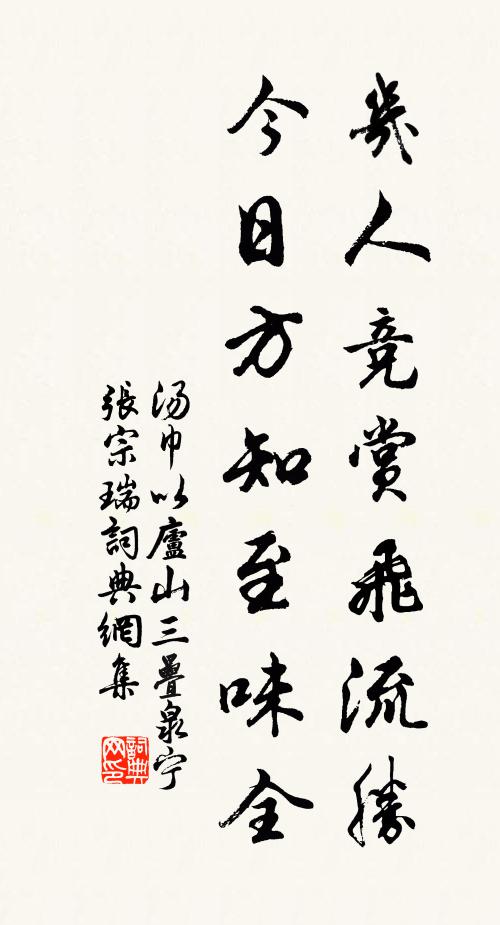 幾人竞賞飛流勝
今日方知至味全
汤巾以廬山三疊泉宁
張宗瑞詞典網集
詞典网印